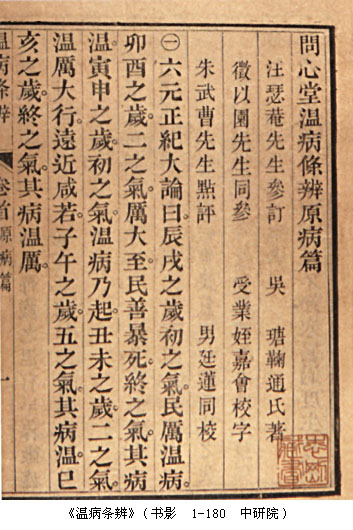 問心堂温病條辨原病篇
汪瑟菴先生參訂 吳 瑭鞠通氏著
徵以園先生同參 受業姪嘉會校字
朱武曹先生點評 男廷蓮同校
㊀六元正紀大論曰辰戌之歲初之氣。民厲温病。
卯酉之歲二之氣。厲大至民善暴死終之氣。其病
温。寅申之歲初之氣。温病乃起。丑未之歲二之氣。
温厲大行。遠近咸若。子午之歲五之氣。其病温。巳
亥之歲終之氣。其病温厲
温病条辨 卷首 原病篇 一
《温病条辨》(书影 1-180 中研院)